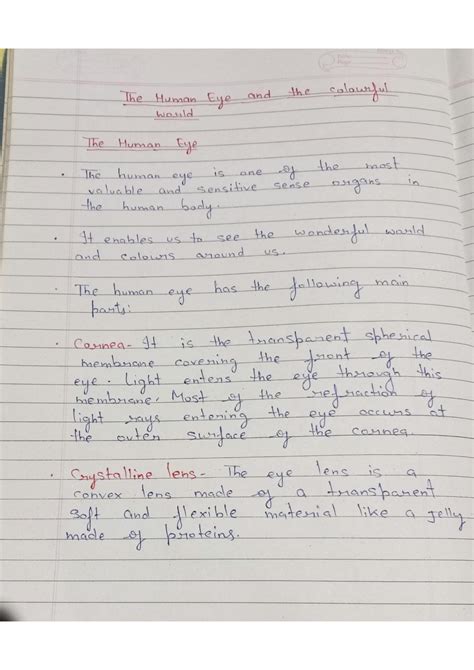 The Human Eye and the colourful
world
The Human Eye
• The human eye is one of the most
valuable and sensitive sense organs in
the human body.
• It enables us to see the wonderful world
and colours around us.
• The human eye has the following main
parts:
• Cornea- It is the transparent spherical
membrane covering the front of the
eye. Light enters the eye through this
membrane. Most of the refraction of
light rays entering the eye occurs at
the outer surface of the cornea.
• Crystalline lens- The eye lens is a
convex lens made of a transparent
soft and flexible material like a jelly
made of proteins.